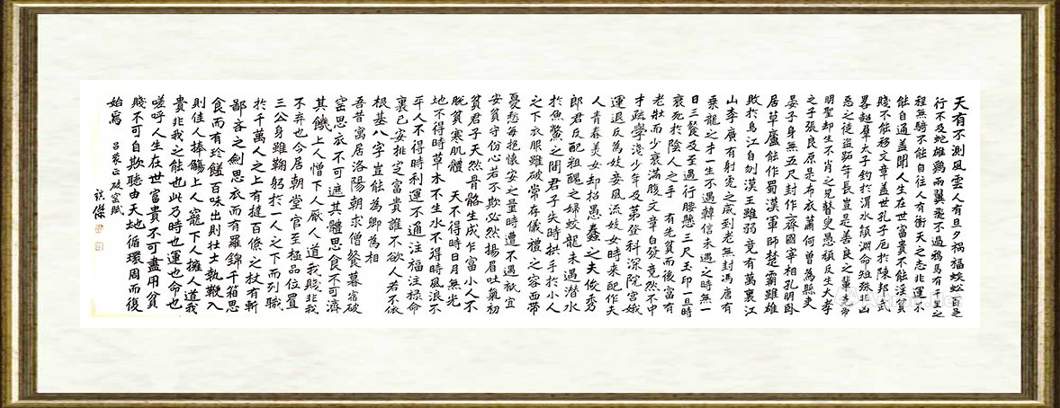 天有不測風雲人有旦夕禍福蜈蚣百足
行不及蛇雄鷄兩翼飛不過鴉馬有千里之
程無騎不能自往人有衝天之志非運不
能自通蓋聞人生在世富貴不能淫貧
賤不能移文章蓋世孔子厄於陳邦武
畧超羣太子釣於渭水顏淵命短殊非凶
惡之徒盜跖年長豈是善良之輩堯帝
明聖却生不肖之兒瞽叟愚頑反生大孝
之子張良原是布衣蕭何曾為縣吏
晏子身無五尺封作齊國宰相孔明臥
居草廬能作蜀漢軍師楚霸雖雄
敗於烏江自刎漢王雖弱竟有萬裏江
山李廣有射虎之威到老無封馮唐有
乘龍之才一生不遇韓信未遇之時無一
日三餐及至遇行腰懸三尺玉印一旦時
衰死於陰人之手 有先貧而後富有
老壯而少衰滿腹文章白發竟然不中
才疏學淺少年及第登科深院宮娥
運退反為妓妾風流妓女時來配作夫
人青春美女却招愚蠢之夫俊秀
郎君反配粗醜之婦蛟龍未遇潛水
於魚鱉之間君子失時拱手於小人
之下衣服雖破常存儀禮之容面帶
憂愁每抱懷安之量時遭不遇秖宜
安貧守份心若不欺必然揚眉吐氣初
貧君子天然骨骼生成乍富小人不
脫貧寒肌體 天不得時日月無光
地不得時草木不生水不得時風浪不
平人不得時利運不通注福注祿命
裏已安排定富貴誰不欲人若不依
根基八字豈能為卿為相
吾昔寓居洛陽朝求僧餐暮宿破
窑思衣不可遮其體思食不可濟
其饑上人憎下人厭人道我賤非我
不弃也今居朝堂官至極品位置
三公身雖鞠躬於一人之下而列職
於千萬人之上有撻百僚之杖有斬
鄙吝之劍思衣而有羅錦千箱思
食而有珍饈百味出則壯士執鞭入
則佳人捧觴上人寵下人擁人道我
貴非我之能也此乃時也運也命也
嗟呼人生在世富貴不可盡用貧
賤不可自欺聽由天地循環周而復
始焉 呂蒙正破窑賦